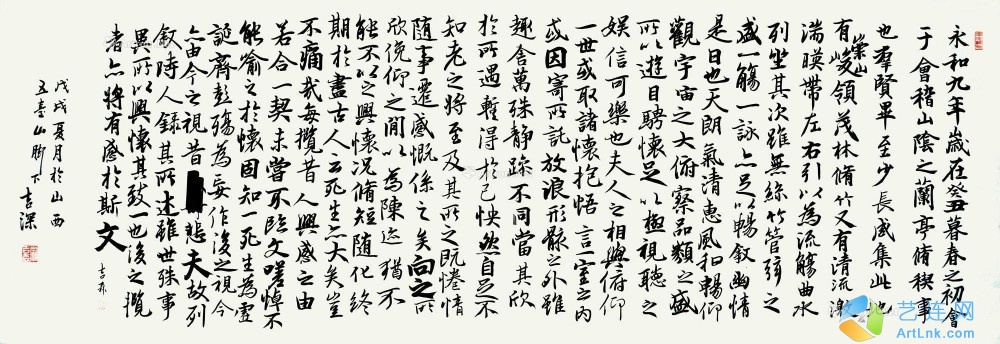 永和九年歲在癸丑暮春之初會
于會稽山陰之蘭亭脩稧事
也羣賢畢至少長咸集此地
有崇山峻領茂林脩竹又有清流激
湍暎帶左右引以為流觴曲水
列坐其次雖無絲竹管弦之
盛一觴一詠亦足以暢敘幽情
是日也天朗氣清惠風和暢仰
觀宇宙之大俯察品類之盛
所以遊目騁懷足以極視聽之
娛信可樂也夫人之相與俯仰
一世或取諸懷抱悟言一室之內
或因寄所託放浪形骸之外雖
趣舍萬殊靜躁不同當其欣
於所遇暫得於己怏然自足不
知老之將至及其所之既惓情
隨事遷感慨係之矣向之所
欣俛仰之間以為陳迹猶不
能不以之興懷況脩短隨化終
期於盡古人云死生亦大矣豈
不痛哉每攬昔人興感之由
若合一契未嘗不臨文嗟悼不
能喻之於懷固知一死生為虛
誕齊彭殤為妄作後之視今
亦由今之視昔悲夫故列
敘時人錄其所述雖世殊事
異所以興懷其致一也後之攬
者亦將有感於斯文
戊戌夏月於山西
五臺山腳下 吉深
艺连网
ArtLnk.com